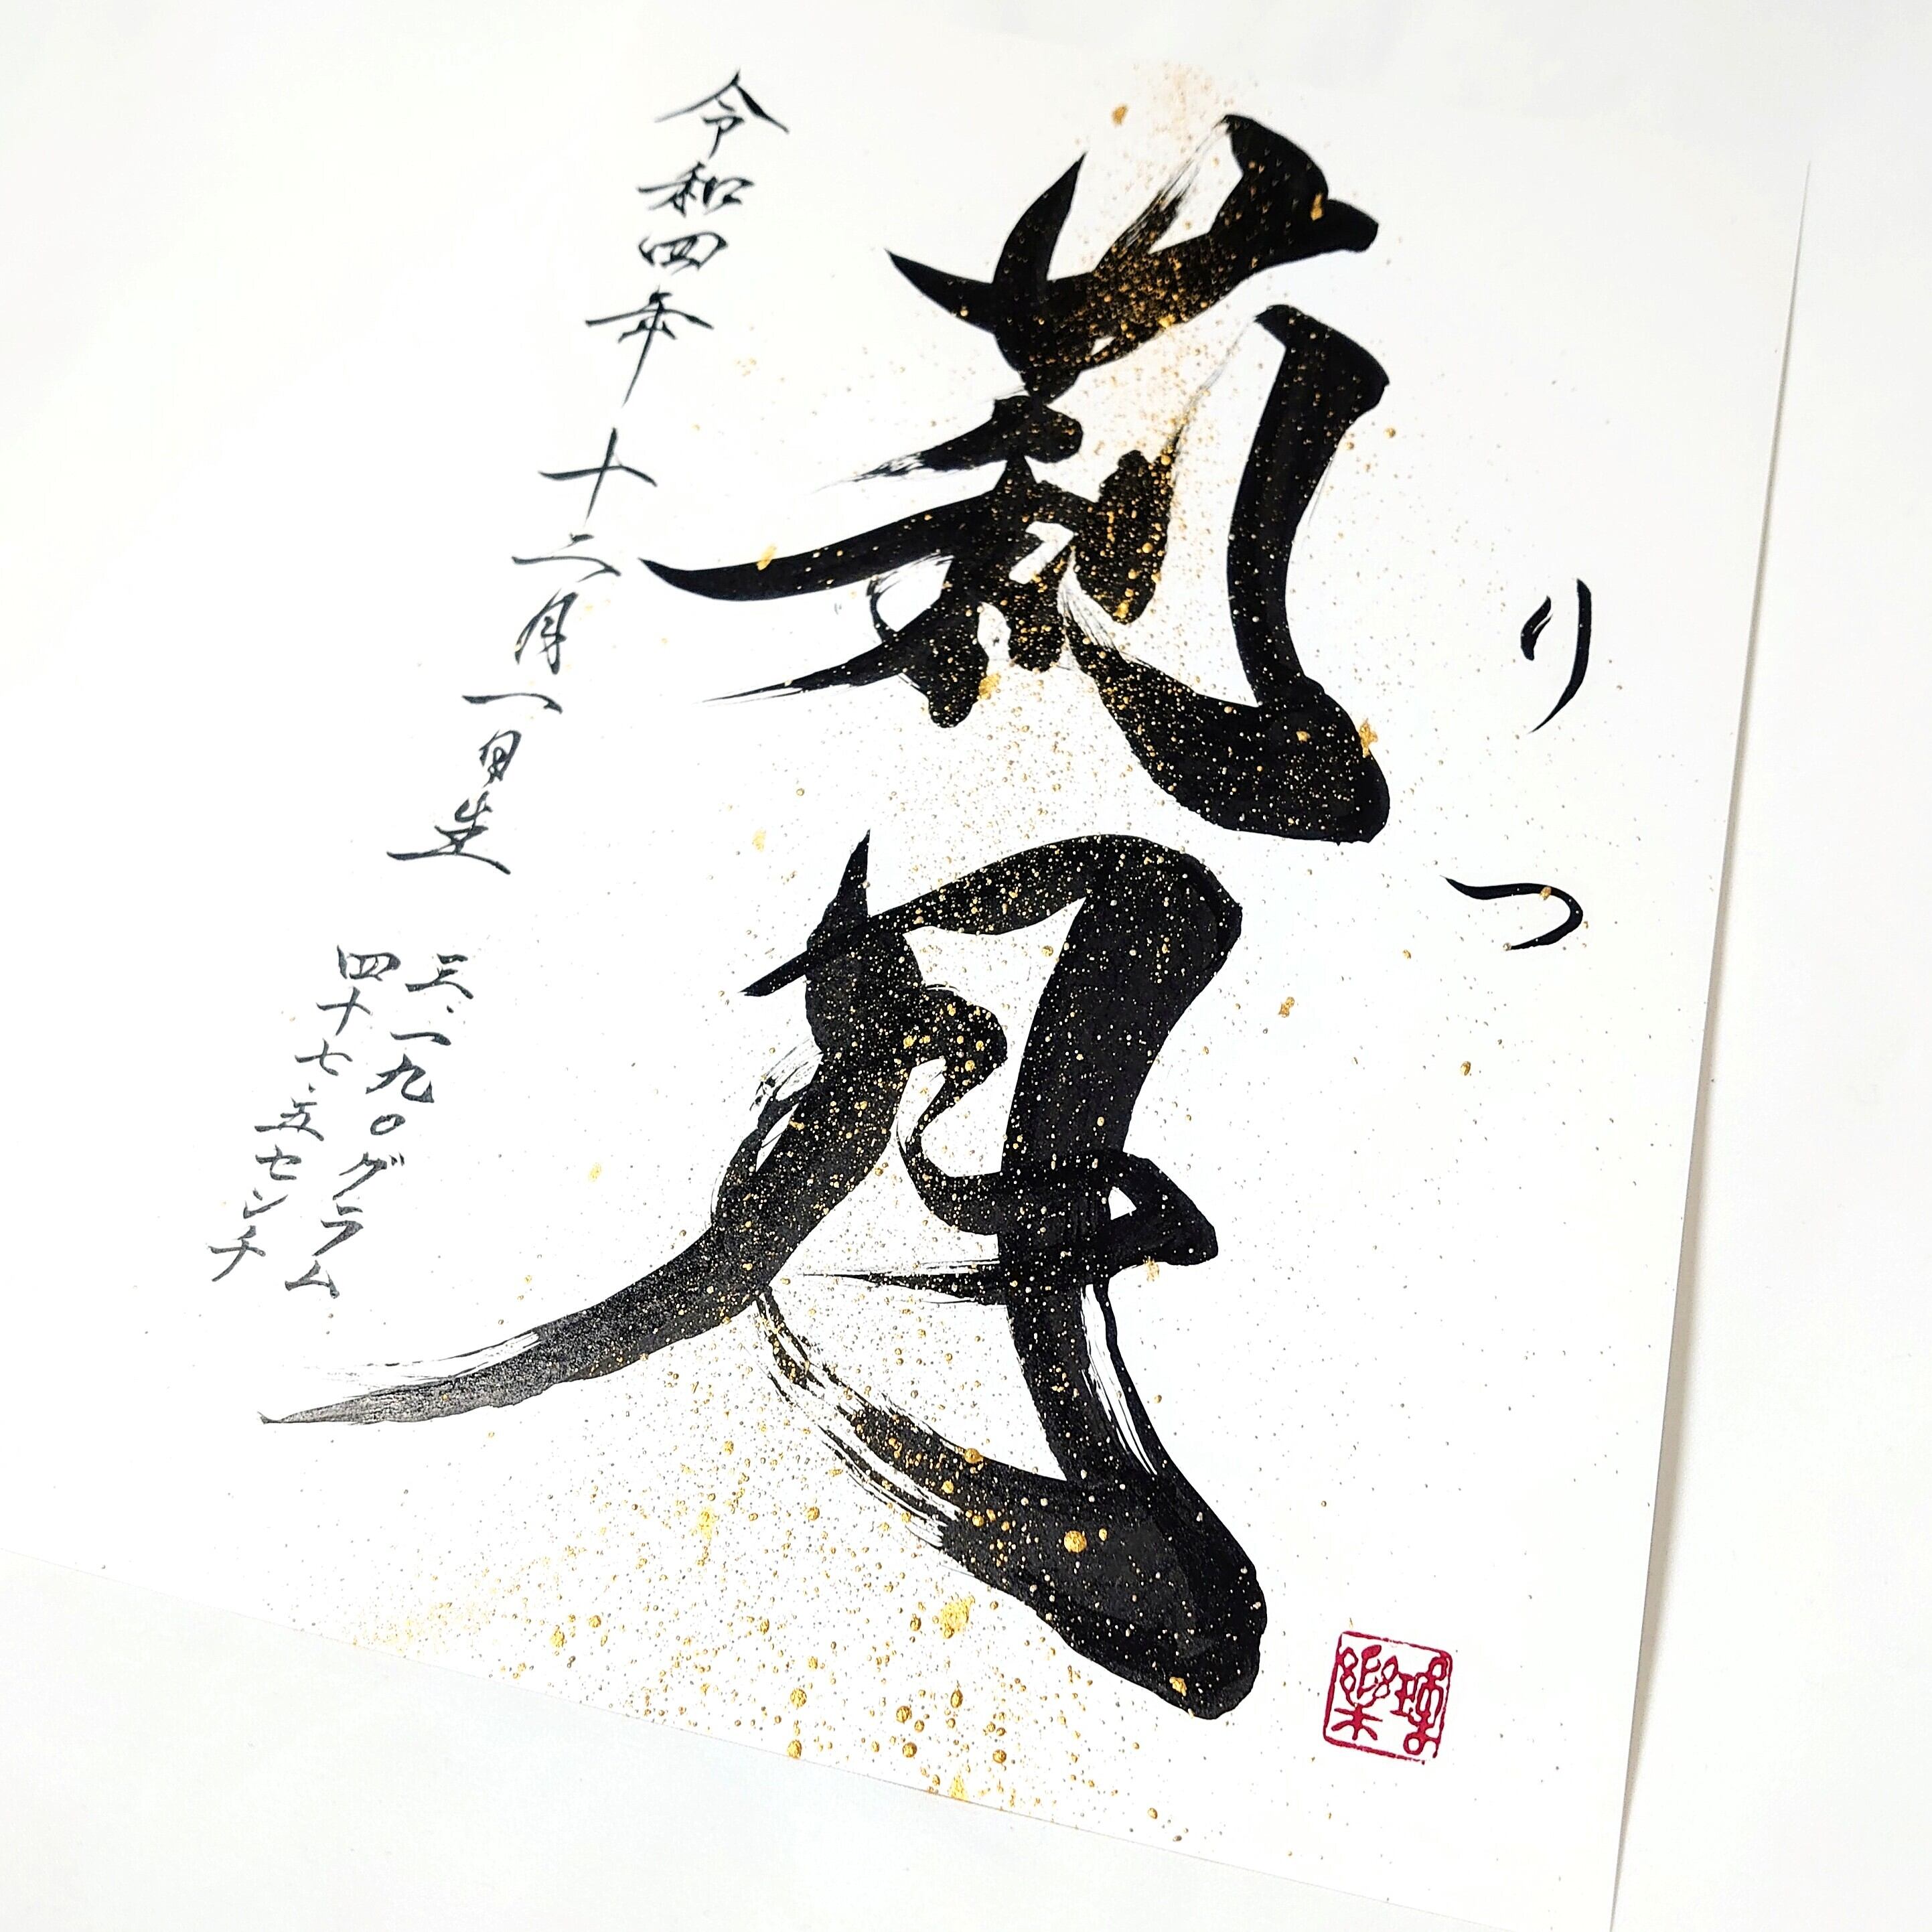 りつ
莉月
令和四年十二月一日生
三、一九〇グラム
四十七.五センチ